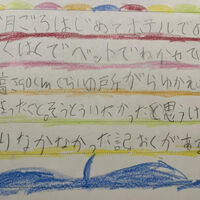 月ごろはじめてホテルでの
くはくでベットでねかせてい
高さ50cmぐらいの所からゆかえ
まったこと。そうとういたかったと思うけ
りなかなかった記おくがある